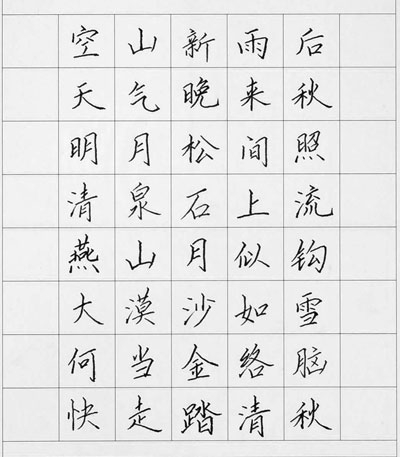 空山新雨后
天气晚来秋
明月松间照
清泉石上流
燕山月似钩
大漠沙如雪
何当金络脑
快走踏清秋